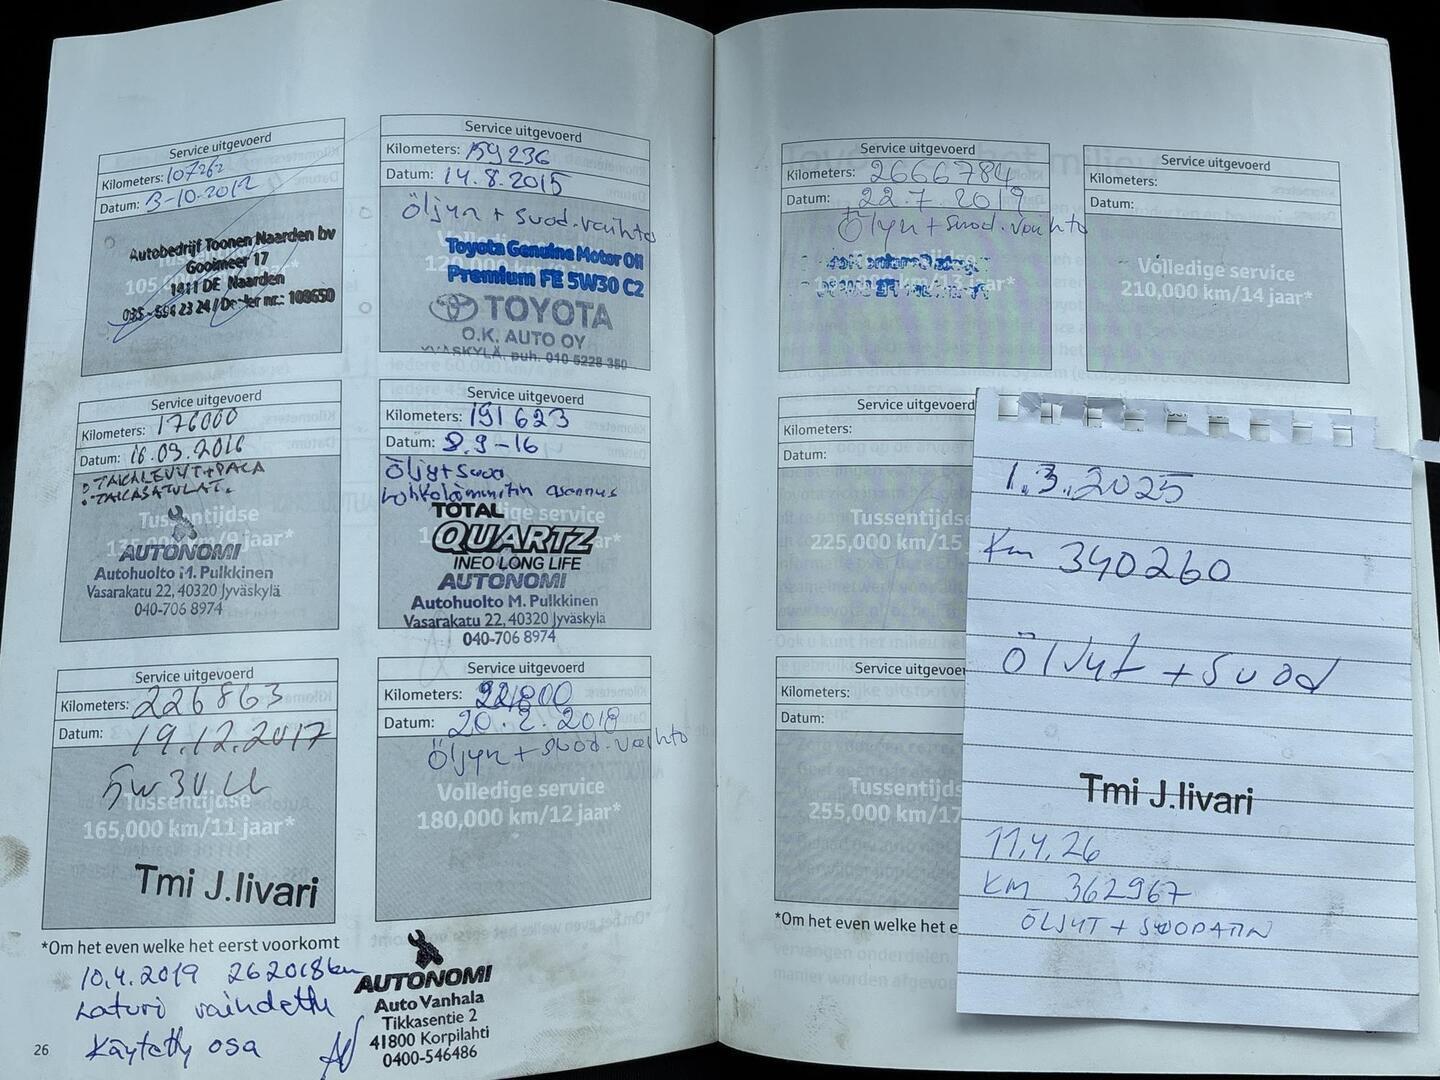 Service uitgevoerd
Kilometers: 107262
Datum: 3-10-2012
Autobedrijf Toonen Naarden bv
Gooimeer 17
1411 DE Naarden
Service uitgevoerd
Kilometers: 159236
Datum: 14.8.2015
Öljyn + suod.vaihto
Toyota Genuine Motor Oil
Premium FE 5W30 C2
TOYOTA
O.K. AUTO OY
JYVÄSKYLÄ, puh. 010 5228 350
Service uitgevoerd
Kilometers: 176000
Datum: 16.03.2016
• TAKALEVYT + PALA
• TAKASATULAT.
Tussentijdse
AUTONOMI
Autohuolto M. Pulkkinen
Vasarakatu 22, 40320 Jyväskylä
040-706 8974
Service uitgevoerd
Kilometers: 191623
Datum: 8.9-16
Öljyt + suod
lohkolämmitin asennus
TOTAL
QUARTZ
INEO LONG LIFE
AUTONOMI
Autohuolto M. Pulkkinen
Vasarakatu 22, 40320 Jyväskylä
040-706 8974
Service uitgevoerd
Kilometers: 226863
Datum: 19.12.2017
Tussentijdse
165,000 km/11 jaar*
Tmi J.Iivari
Service uitgevoerd
Kilometers:
Datum: 20.2.2018
Öljyn + suod.vaihto
Volledige service
180,000 km/12 jaar*
*Om het even welke het eerst voorkomt
10.4.2019 262018km
Laturi vaihdettu
Käytetty osa
AUTONOMI
Auto Vanhala
Tikkasentie 2
41800 Korpilahti
0400-546486
26
Service uitgevoerd
Kilometers: 2666784
Datum: 22.7.2019
Öljyn + suod.vaihto
Service uitgevoerd
Kilometers:
Datum:
Volledige service
210,000 km/14 jaar*
Service uitgevoerd
Kilometers:
Datum:
Tussentijdse
225,000 km/15
Service uitgevoerd
Kilometers:
Datum:
Tussentijds
255,000 km/17
*Om het even welke het e
1.3.2025
Km 340260
Öljyt + suod
Tmi J.Iivari
11.4.26
KM 362967
ÖLJYT + SUODATIN